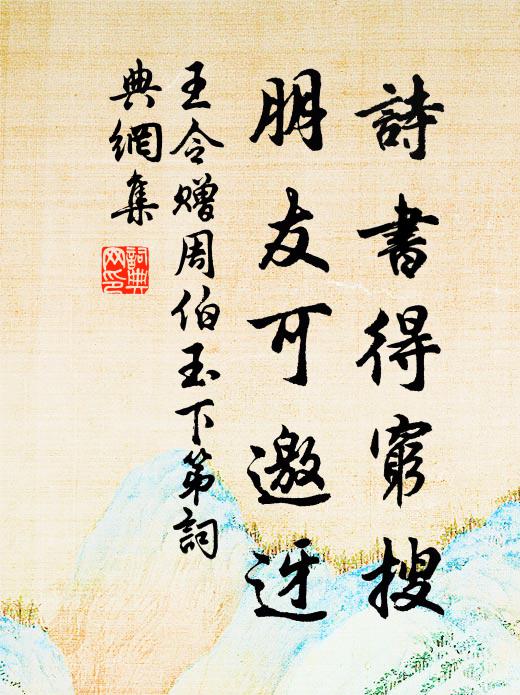 詩書得窮搜
朋友可邀迓
王令赠周伯玉下第詞
典網集
詞典
网印